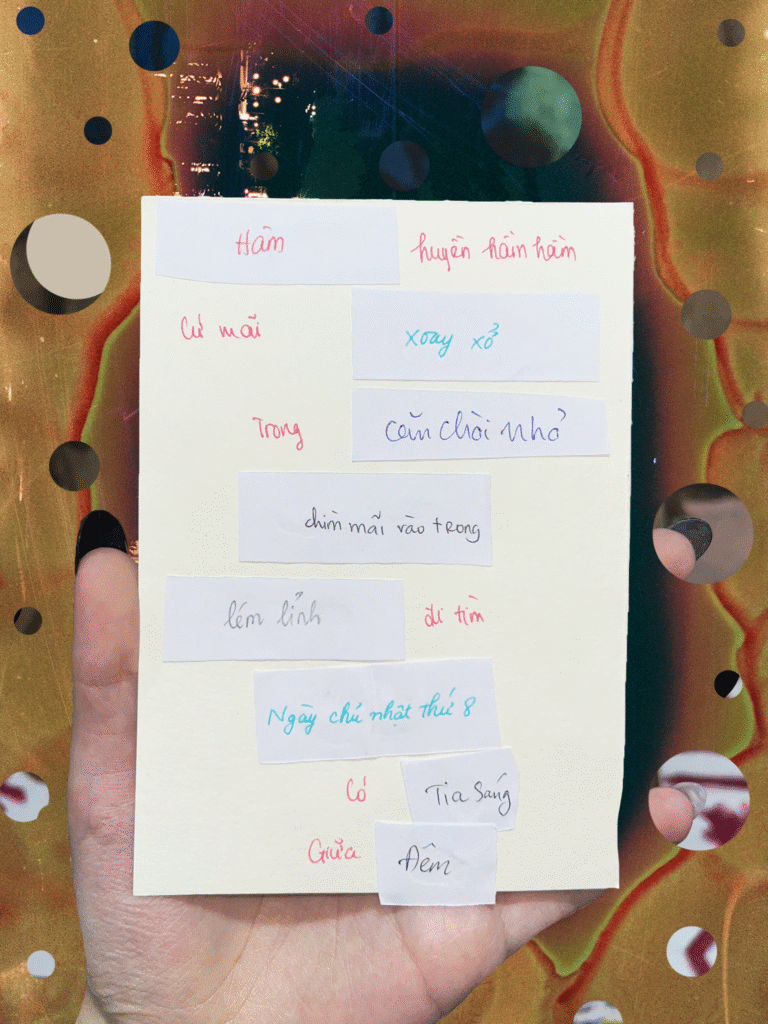 Hầm huyền hầm hầm
Cứ mãi xoay xở
Trong căn chòi nhỏ
chìm mãi vào trong
lém lỉnh đi tìm
Ngày chủ nhật thứ 8
Có Tia Sáng
Giữa Đêm